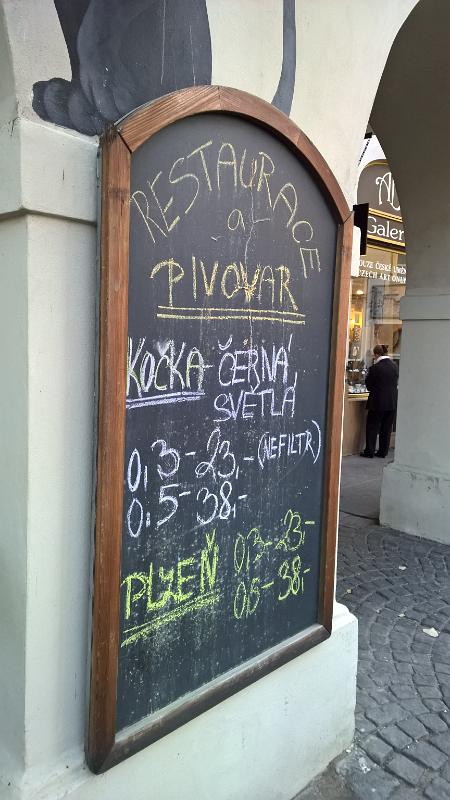 RESTAURACE
a
PIVOVAR
KOČKA - ČERNÁ,
SVETLÁ
0,3 - 23,- (NEFILTR)
0.5 - 38,-
PLZEŇ 0,3 - 23,-
0,5 - 38,-
Galer
OUZE ČESKÉ UMĚN
CZECH ART ONLY